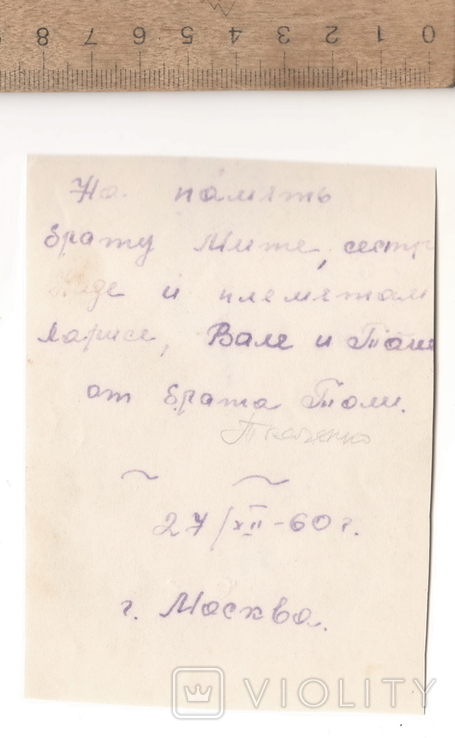 8 7 6 5 4 3 2 1 0
На память
брату Мите, сестр
Наде и племяткам
Ларисе, Вале и Тане
от брата Толи.
Ткаченко
27/XII-60 г.
г. Москва.
VIOLITY